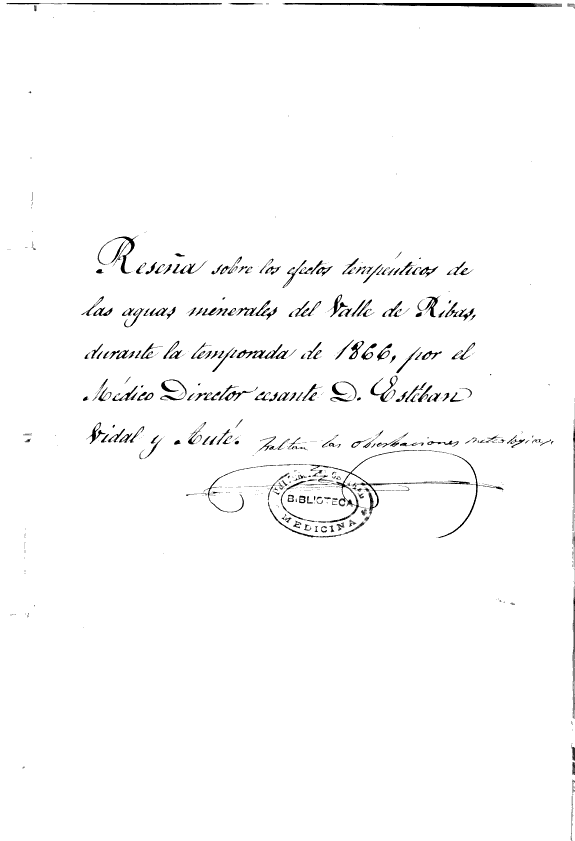 Reseña sobre los efectos terapéuticos de
las aguas minerales del Valle de Ribas,
durante la temporada de 1866, por el
Médico Director cesante D. Estéban
Vidal y Auté. faltan las observaciones
BIBLIOTECA
MEDICINA